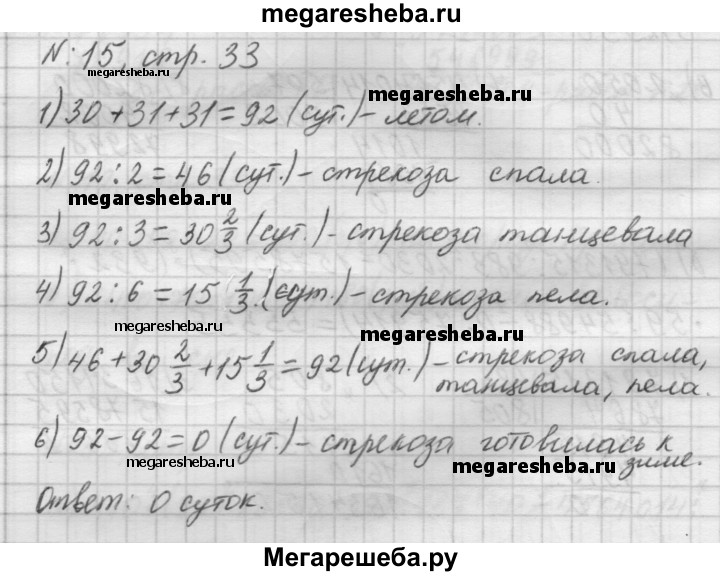 megaresheba.ru
N: 15, стр. 33
megaresheba.ru
1) 30 + 31 + 31 = 92 (сут.) - летом.
megaresheba.ru
2) 92 : 2 = 46 (сут.) - стрекоза спала.
megaresheba.ru
3) 92 : 3 = 30 2/3 (сут.) - стрекоза танцевала
4) 92 : 6 = 15 1/3 (сут.) - стрекоза пела.
megaresheba.ru
megaresheba.ru
5) 46 + 30 2/3 + 15 1/3 = 92 (сут.) - стрекоза спала,
танцевала, пела.
6) 92 - 92 = 0 (сут.) - стрекоза готовилась к
зиме.
megaresheba.ru
megaresheba.ru
Ответ: 0 суток.
Мегарешеба.ру